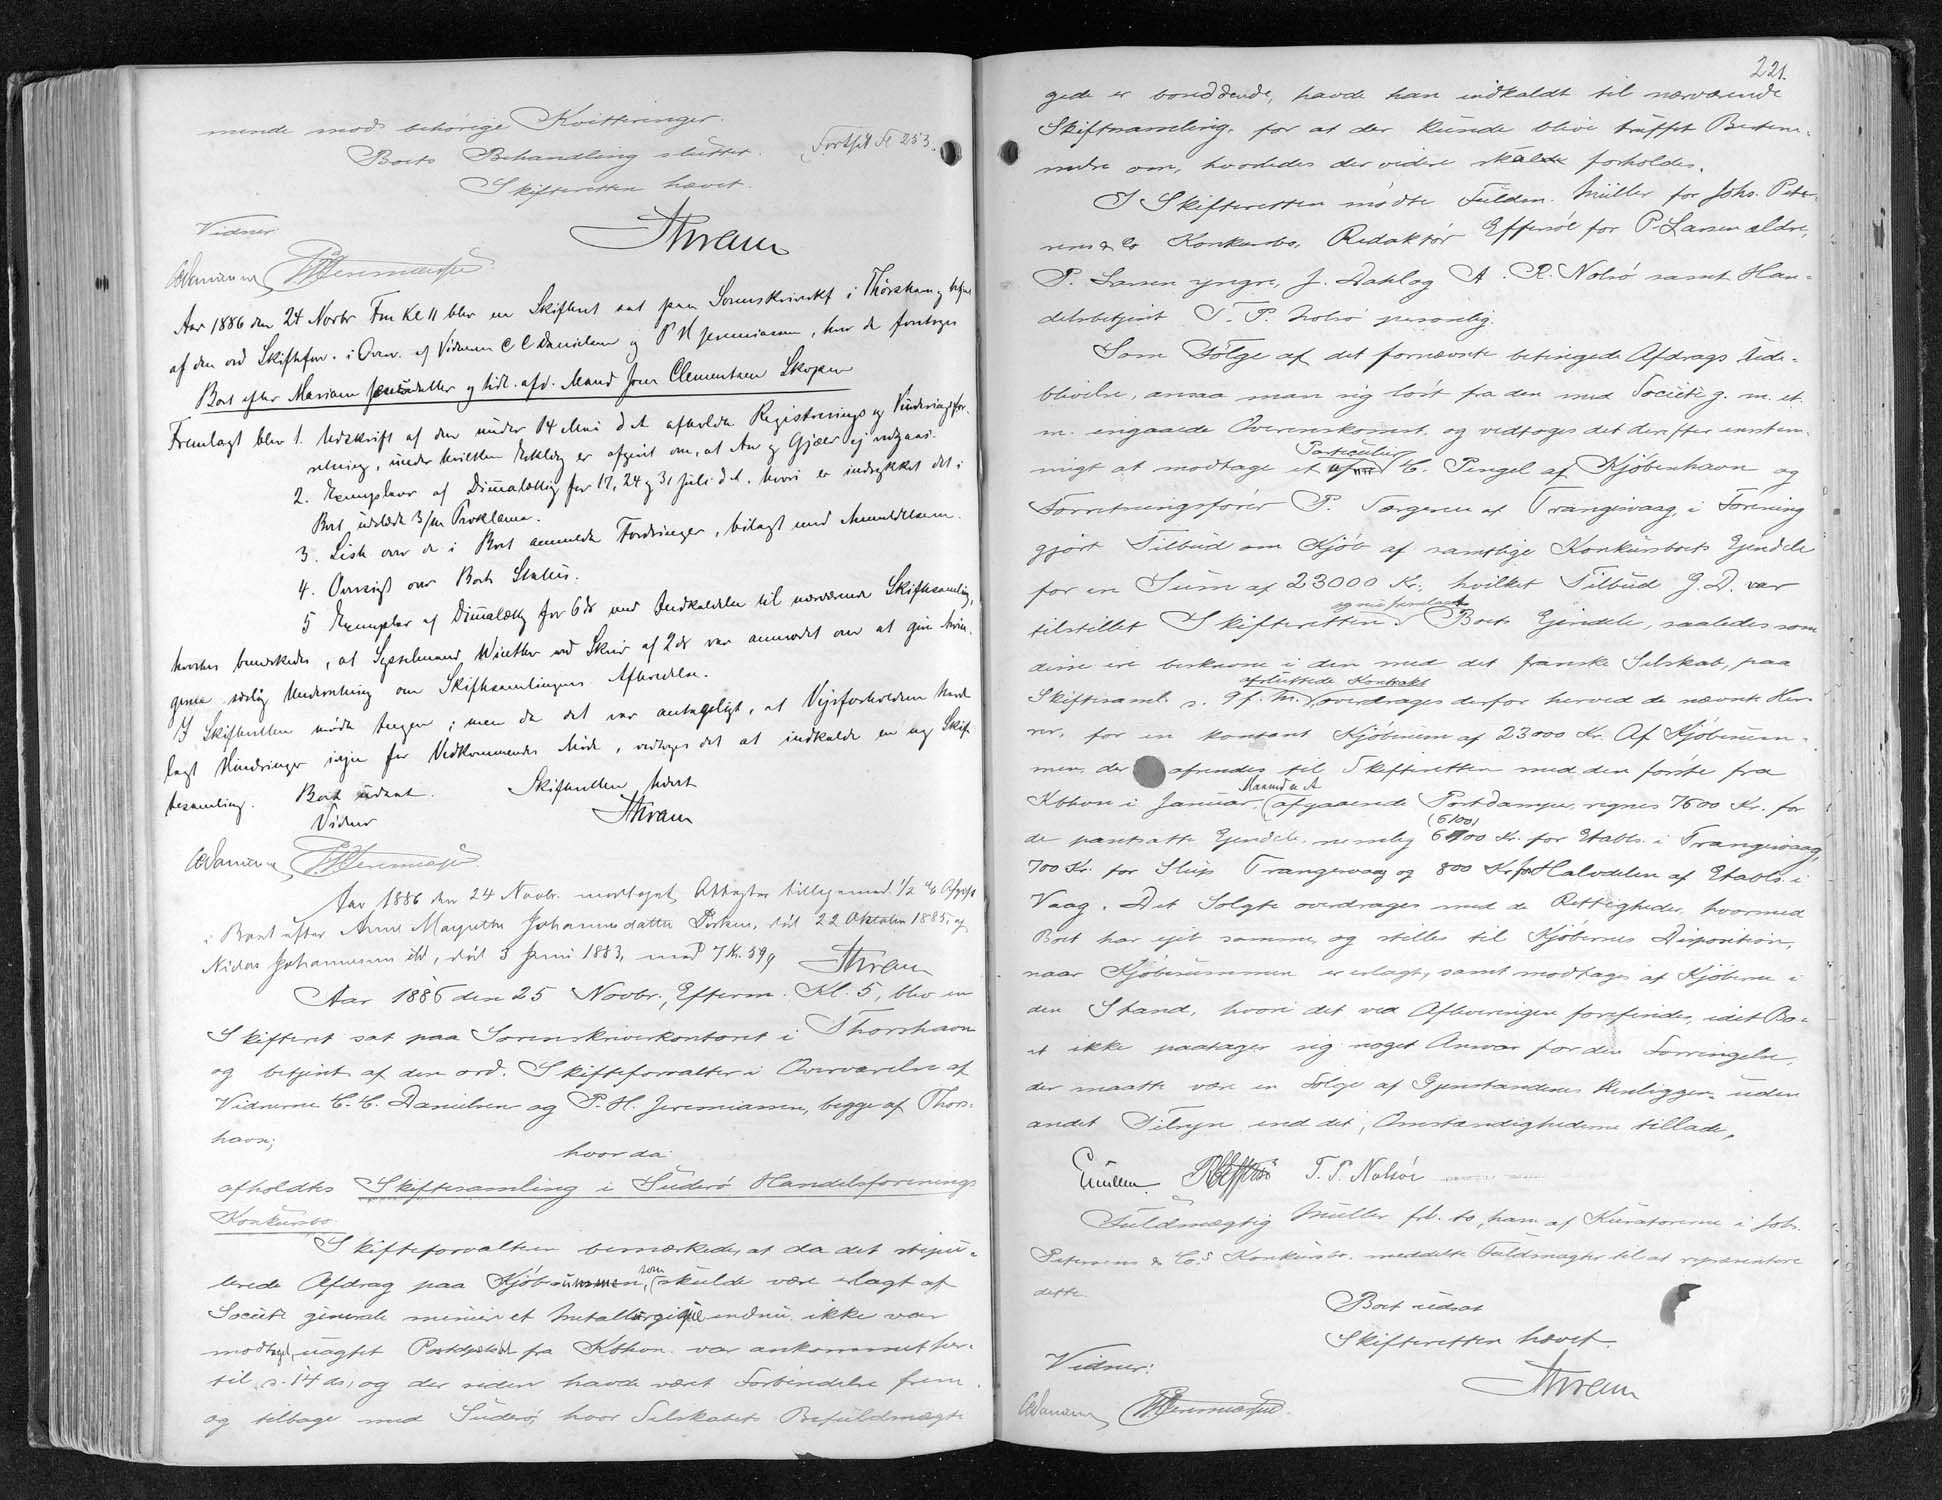 mende mod behørige Kvitteringer.
Boets Behandling sluttet. Fortsat Fl 253.
Skifteretten hævet.
Vidner:
CCDanielsen PHJeremiassen
Aar 1886 den 24 Novbr Fm Kl 11 blev en Skifteret sat paa Sorenskriverktr i Thorshavn og betjent
af den ord Skifteforv. i Overv. af Vidnerne C C Danielsen og P H Jeremiassen, hvor da foretoges
Boet efter Mariane og tidl. afd. Mand Joen Clementsen Skopen
Fremlagt blev 1. Udskrift af den under 14 Mai d A afholdte Registrerings og Vurderingsfor-
retning, under hvilken Erklæg er afgivet om, at Arv og Gjæld ej vedgaas.
2. Exemplarer af Dimalætting for 17, 24 og 31 Juli d A. hvori er indrykket det i
Boet udstedte 3/m Proklama.
3. Liste over de i Boet anmeldte Fordringer, bilagt med Anmeldelserne.
4. Oversigt over Boets Status.
5 Exemplar af Dimalætting for 6 ds med Indkaldelse til nærværende Skiftesamling,
hvorhos bemærkedes, at Sysselmand Winther ved Skriv af 2 ds var anmodet om at give Arvin-
gerne særlig Underretning om Skiftesamlingens Afholdelse.
I Skifteretten mødte Ingen; men da det var antageligt, at Vejrforholdene havde
lagt Hindringer ivejen for Vedkommendes Møde, vedtoges det at indkalde en ny Skif-
tesamling. Boet udsat. Skifteretten hævet
Vidner
CCDanielsen PHJeremiassen
Aar 1886 den 24 Novbr. modtaget Attester tilligemed 1/2 % Afgift
i Boet efter Anne Margrethe Johannesdatter død 22 Oktober 1885, og
Johannesen død 3 Juni 1883, med 7 Kr. 59
Aar 1886 den 25 Novbr., Efterm. Kl. 5, blev en
Skifteret sat paa Sorenskriverkontoret i Thorshavn
og betjent af den ord. Skifteforvalter i Overværelse af
Vidnerne C. C. Danielsen og P. H. Jeremiassen, begge af Thors-
havn;
hvor da:
afholdtes Skiftesamling i Suderø Handelsforenings
Konkursbo.
Skifteforvalteren bemærkede, at da det stipu-
lerede Afdrag paa Kjøbesummen, som skulde være erlagt af
Societé generale miniere et metallurgique endnu ikke var
modtaget, uagtet Postskibet fra Kbhvn var ankommet her-
til s. 14 ds, og der siden havde været Forbindelse frem
og tilbage med Suderø, hvor Selskabets Befuldmægti-
221.
gede er boeddende, havde han indkaldt til nærværende
Skiftesamling, for at der kunde blive truffet Bestem-
melse om, hvorledes der videre skulde forholdes.
I Skifteretten mødte Fuldm. Müller for Johs. Peter-
sens & Co Konkursbo, Redaktør Effersøe for P. Larsen ældre,
P. Larsen yngre, J. Dahl og A. R. Nolsø samt Han-
delsbetjent T. P. Nolsø personlig.
Som Følge af det fornævnte betingede Afdrags Ude-
blivelse, ansaa man sig løst fra den med Societé g. m. et
m. indgaaede Overenskomst, og vedtoges det derefter enstem-
migt at modtage et af Particulier C. Pengel af Kjøbenhavn og
Forretningsfører P. af Trangisvaag, i Forening
gjort Tilbud om Kjøb af samtlige Konkursboets Ejendele
for en Sum af 23000 Kr., hvilket Tilbud G. D. var
tilstillet Skifteretten og nu fremlagt. Boets Ejendele, saaledes som
disse ere beskrevne i den med det franske Selskab, paa
Skiftesaml. s. 9 f. M. afsluttede Kontrakt overdrages derfor herved de nævnte Her-
rer, for en kontant Kjøbesum af 23000 Kr. Af Kjøbesum-
men, der afsendes til Skifteretten med den første fra
Kbhvn i Januar Maaned n. A afgaaende Postdamper, regnes 7600 Kr. for
de pantsatte Ejendele, nemlig 6100 (6100) Kr. for Etabls. i Trangisvaag,
700 Kr. for Slup Trangisvaag og 800 Kr for Halvdelen af Etabls. i
Vaag. Det Solgte overdrages med de Rettigheder, hvormed
Boet har ejet samme, og stilles til Kjøbernes Disposition,
naar Kjøbesummen er erlagt, samt modtages af Kjøberne i
den Stand, hvori det ved Afleveringen forefindes, idet Bo-
et ikke paatager sig noget Ansvar for den Forringelse,
der maatte være en Følge af Gjenstandenes Henliggen uden
andet Tilsyn end det, Omstændighederne tillade.
EMüller. REffersøe T. P. Nolsøe
Fuldmægtig Müller frl. to, ham af Kuratorerne i Johs.
Petersens & Co.s Konkursbo meddelte Fuldmagter til at repræsentere
dette.
Boet udsat
Skifteretten hævet.
Vidner:
CCDanielsen PHJeremiassen.